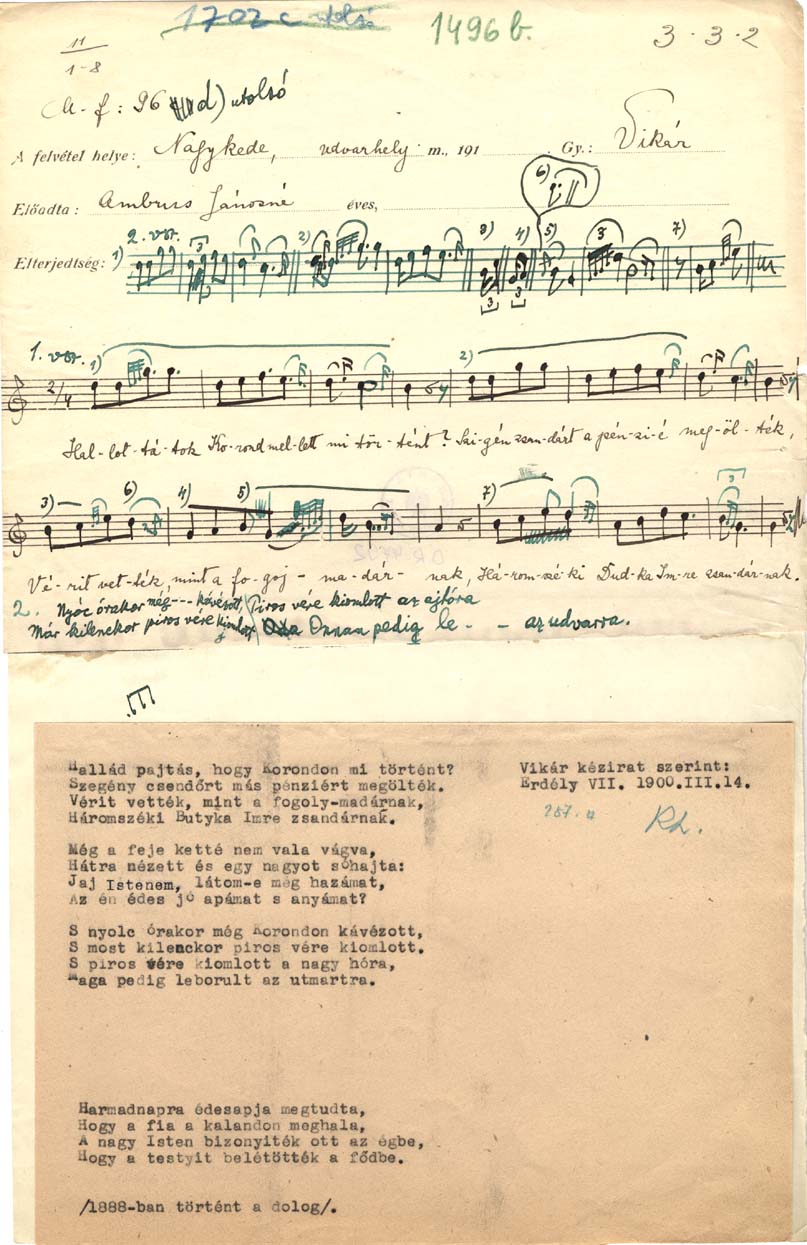 1702 c utolsó
1496 b.
3 · 3 · 2
11
1-8
M. f: 96 d) utolsó
A felvétel helye: Nagykede, udvarhely m., 191 Gy.: Vikár
Előadta: Ambrus Jánosné éves,
6)
Elterjedtség: 1) 2. vsz. 3 2) 3) 4) 5) 3 7)
3 3
1. vsz. 1) 2)
2/4
Hal-lot-tá-tok Ko-rond mel-lett mi tör-tént? Sze-gén zsan-dárt a pén-zi-é meg-öl-ték,
3) 6) 4) 5) 7) 3
Vé-rit vet-ték, mint a fo-goj-ma-dár-nak, Há-rom-szé-ki Dud-ka Im-re zsan-dár-nak.
2. Nyóc órakor még --- kávézott, Piros vére kiomlott az ajtóra
Már kilenckor piros vére kiomlott Onnan pedig le - - az udvarra.
Hallád pajtás, hogy Korondon mi történt?
Szegény csendőrt más pénziért megölték.
Vérit vették, mint a fogoly-madárnak,
Háromszéki Butyka Imre zsandárnak.
Vikár kézirat szerint:
Erdély VII. 1900.III.14.
Még a feje ketté nem vala vágva,
Hátra nézett és egy nagyot sóhajta:
Jaj Istenem, látom-e még hazámat,
Az én édes jó apámat s anyámat?
S nyolc órakor még Korondon kávézott,
S most kilenckor piros vére kiomlott.
S piros vére kiomlott a nagy hóra,
Maga pedig leborult az utmartra.
Harmadnapra édesapja megtudta,
Hogy a fia a kalandon meghala,
A nagy Isten bizonyiték ott az égbe,
Hogy a testyit belétötték a fődbe.
/1888-ban történt a dolog/.